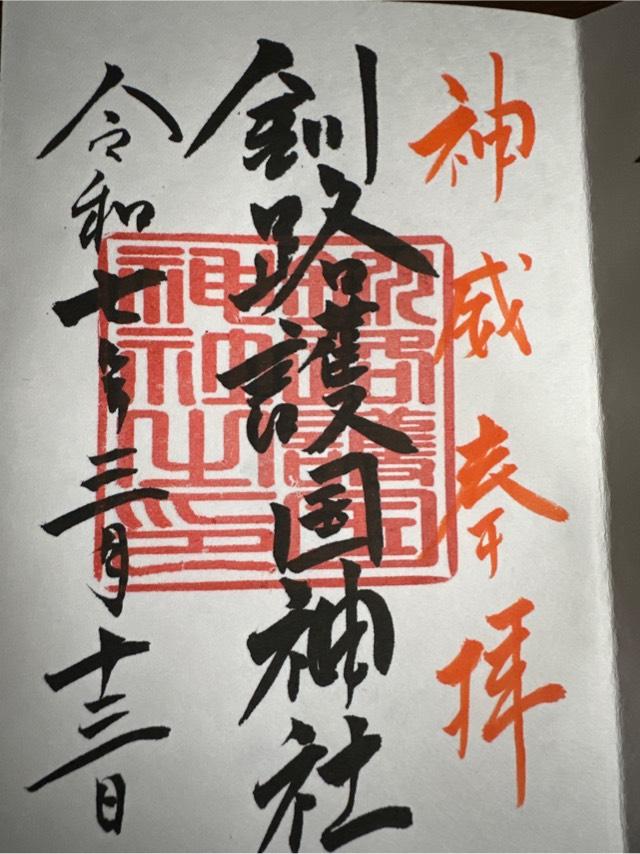 神威奉拝
釧路護国神社
令和七年三月十三日
釧路護国
神社
神社之印